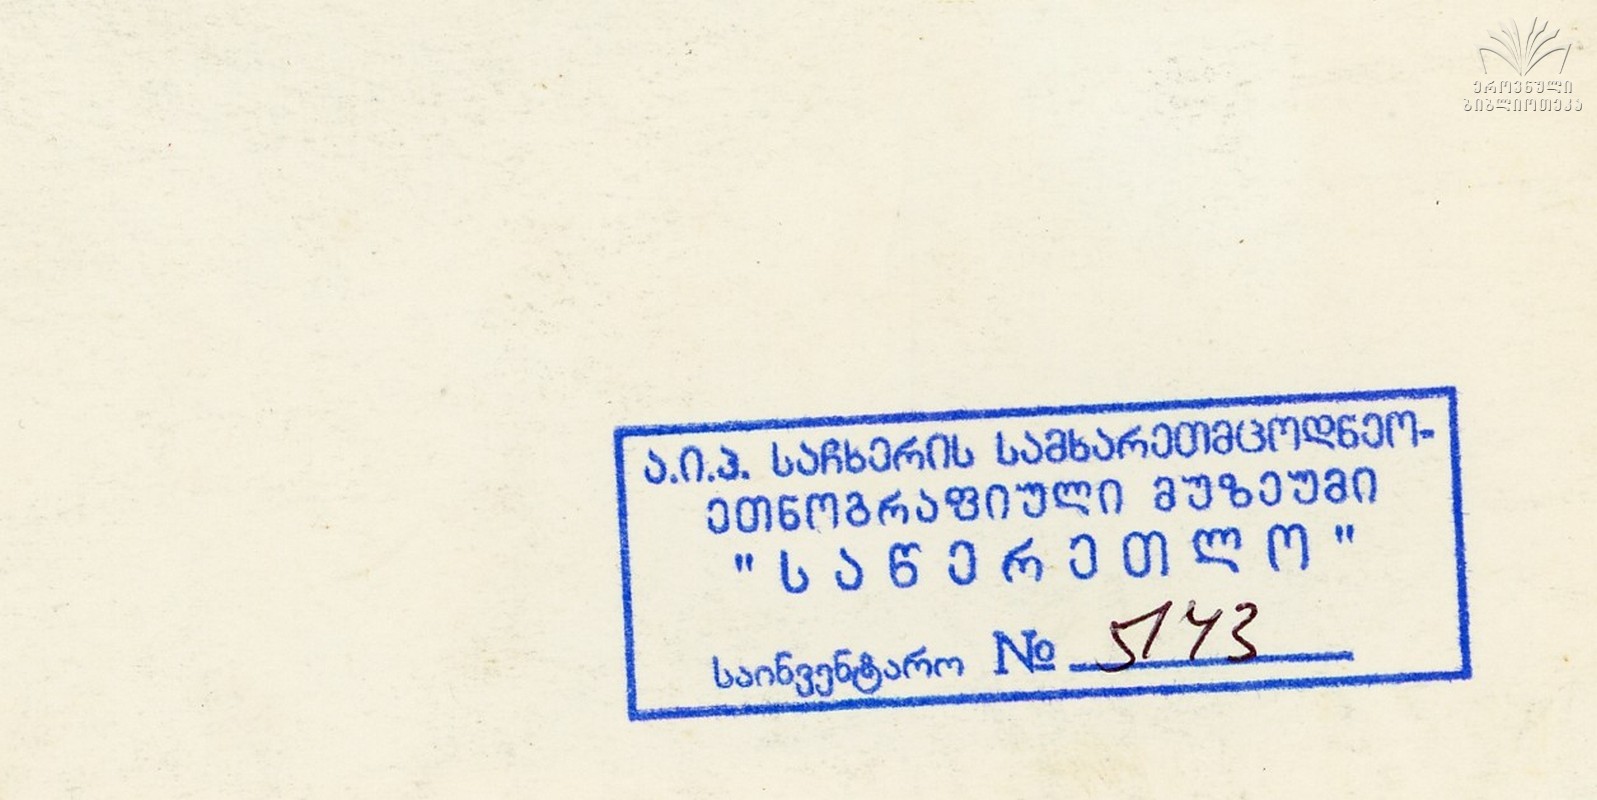 ეროვნული
ბიბლიოთეკა
ა.ი.პ. საჩხერის სამხარეთმცოდნეო-
ეთნოგრაფიული მუზეუმი
"საწერეთლო"
საინვენტარო № 5143